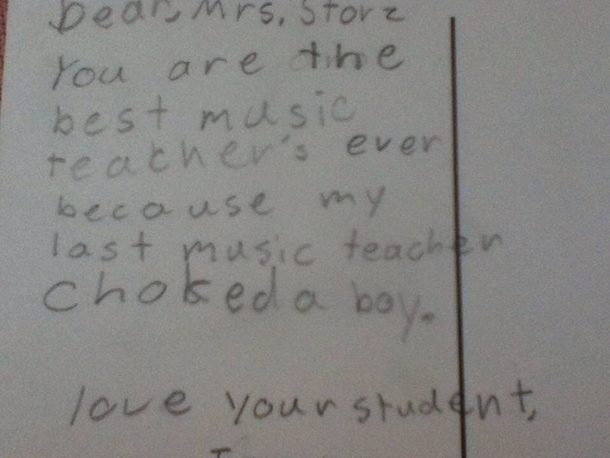 Dear, Mrs. Storz
You are the
best music
teacher's ever
because my
last music teacher
choked a boy.
love your student,